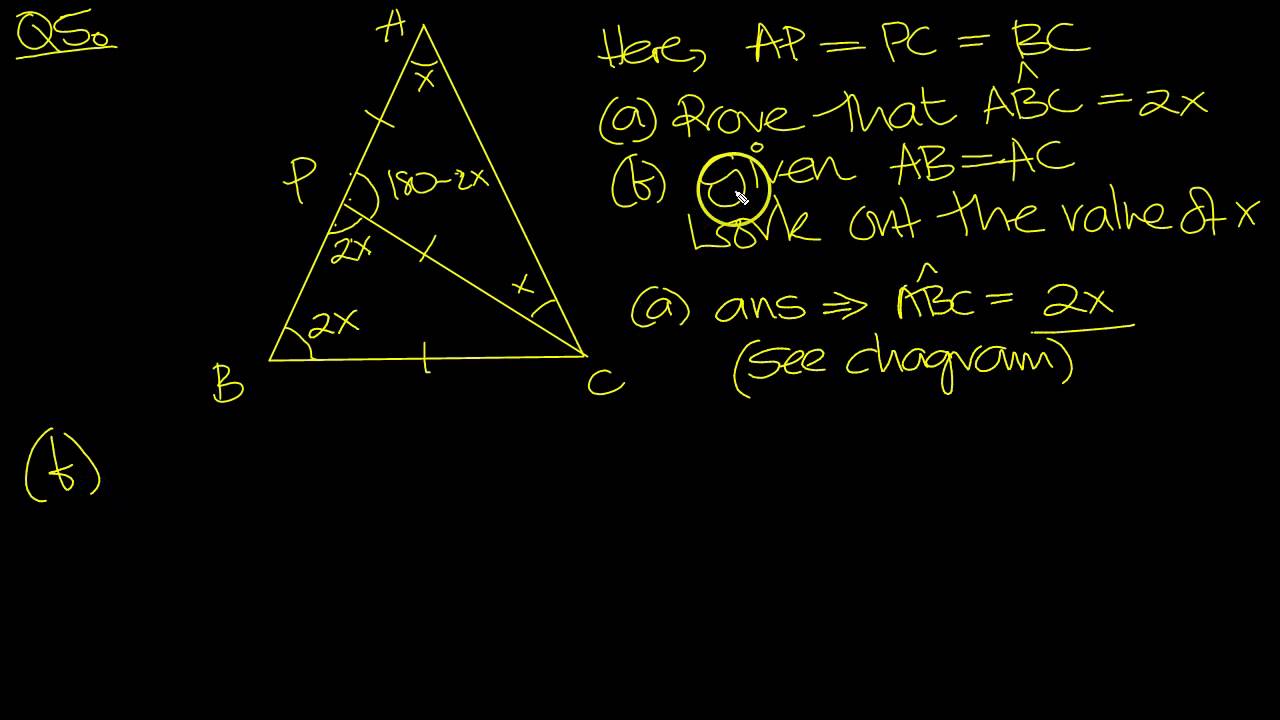 Q5.
A
x
P
180-2x
2x
x
2x
B
C
Here, AP = PC = BC
(a) Prove that AB̂C = 2x
(b) Given AB = AC
Work out the value of x
(a) ans ⇒ AB̂C = 2x
(see diagram)
(b)